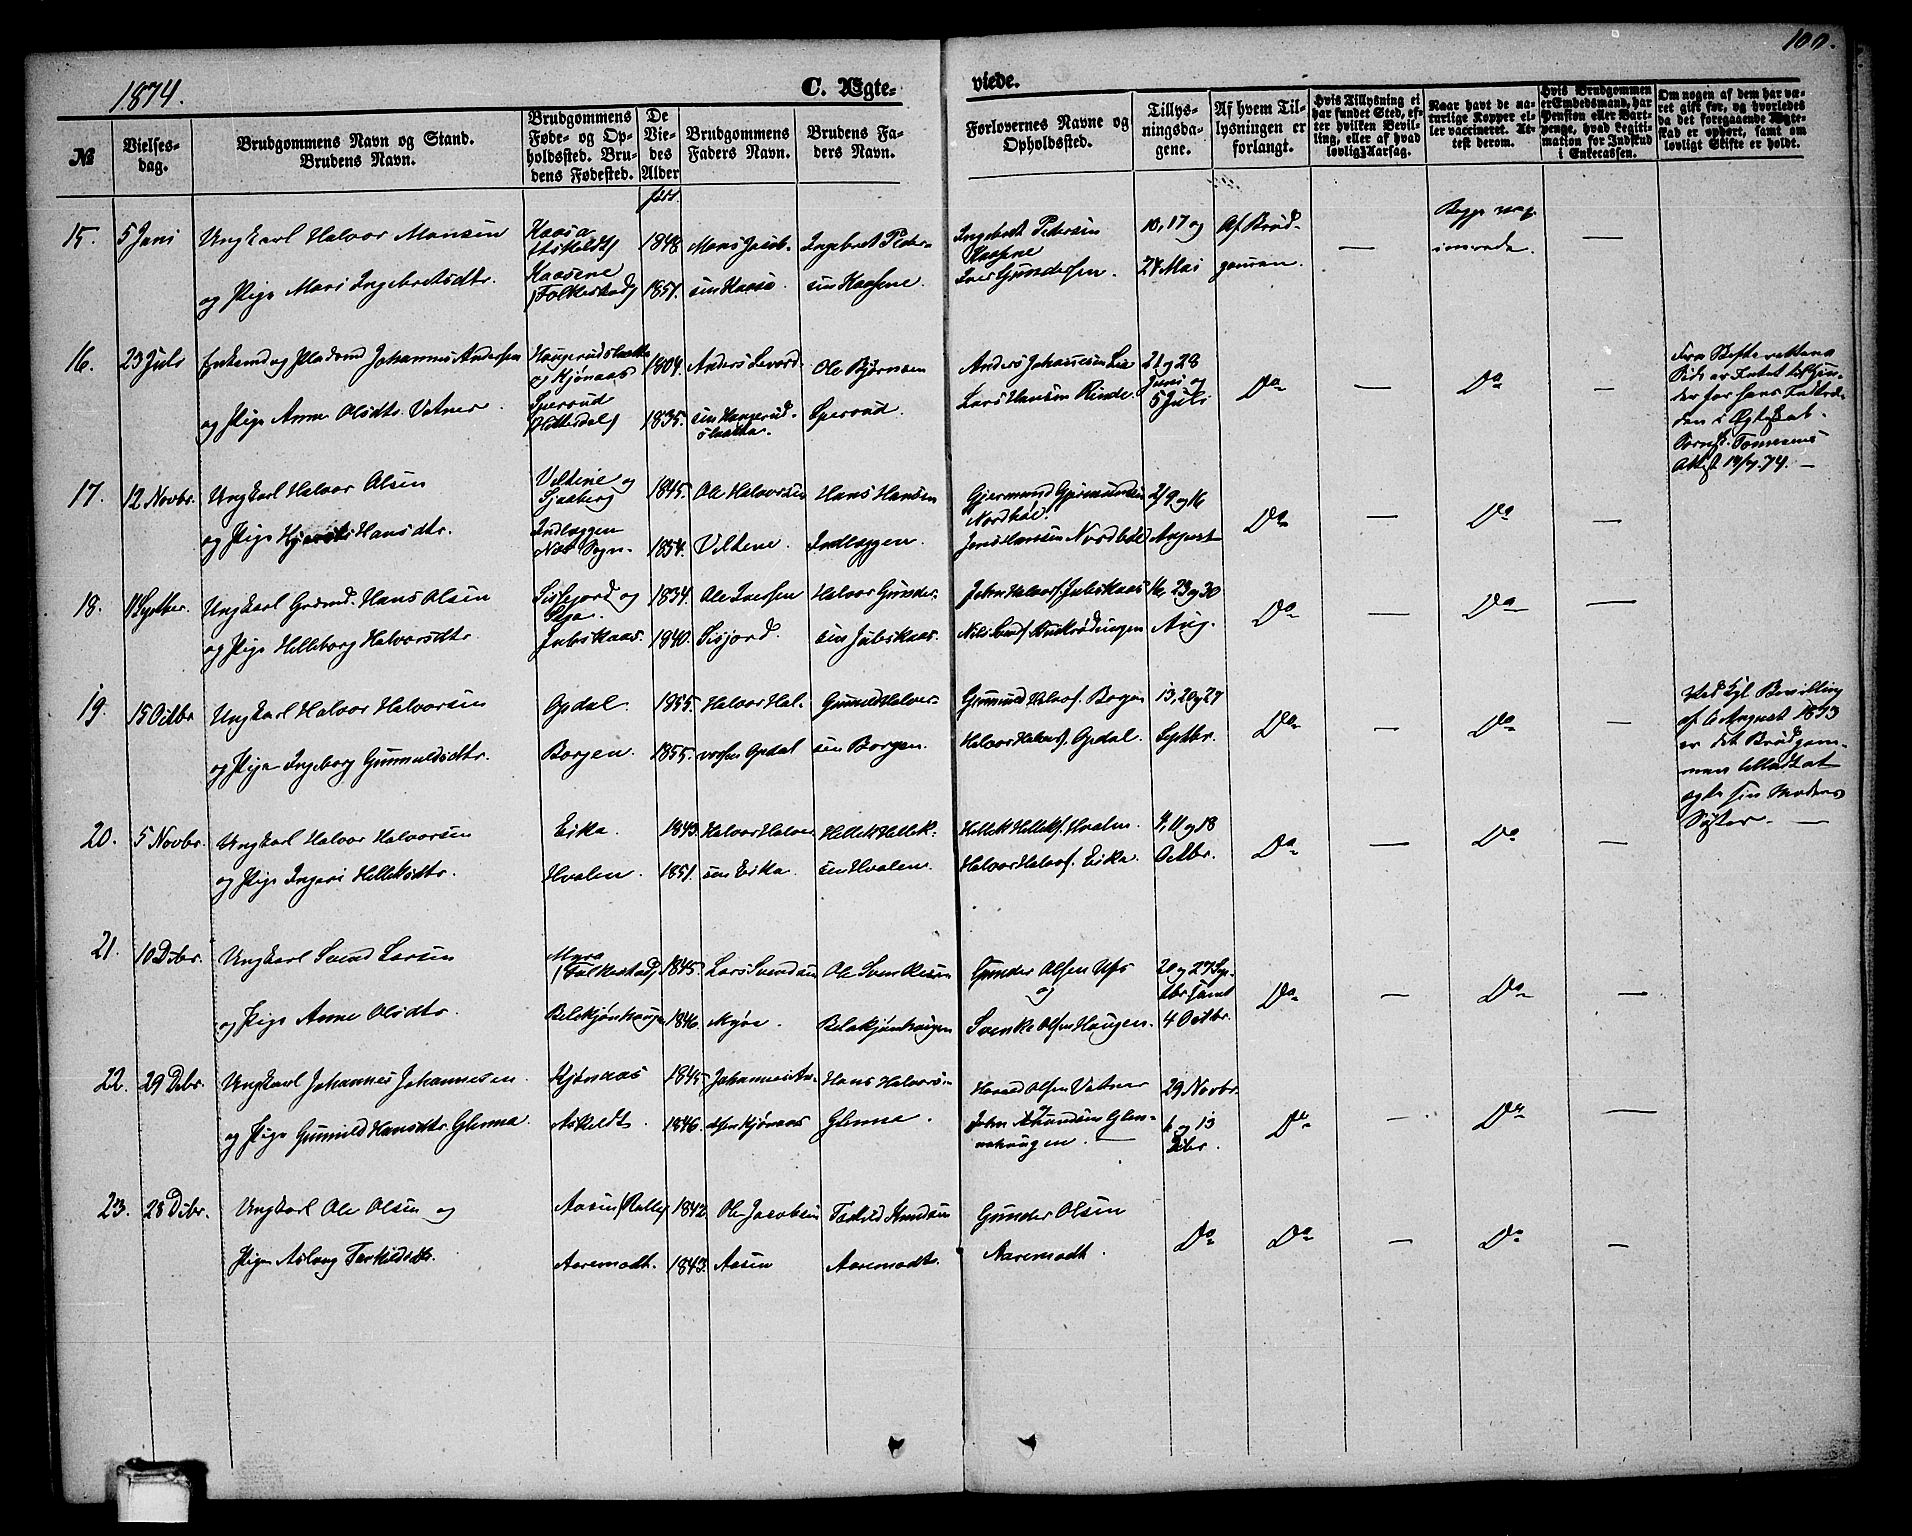 1874.
C. Ægte-
viede.
100.
№
Vielses-
dag.
Brudgommens Navn og Stand.
Brudens Navn.
Brudgommens
Føde- og Op-
holdssted. Bru-
dens Fødested.
De
Vie-
des
Alder
Brudgommens
Faders Navn.
Brudens Fa-
ders Navn.
Forlovernes Navne og
Opholdssted.
Tillys-
ningsda-
gene.
Af hvem Til-
lysningen er
forlangt.
Hvis Tillysning ei
har fundet Sted, ef-
ter hvilken Bevil-
ling, eller af hvad
lovlig Aarsag.
Naar havt de na-
turlige Kopper el-
ler vaccineret. At-
test derom.
Hvis Brudgommen
er Embedsmand, har
Pension eller Vart-
penge, hvad Legiti-
mation for Indskud
i Enkecassen.
Om nogen af dem har væ-
ret gift før, og hvorledes
da det foregaaende Ægte-
skab er ophørt, samt om
lovligt Skifte er holdt.
15. 5 Juni Ungkarl Halvor Monsen
og Pige Mari Ingebretsdtr.
Kaasa
Kaasene
(Folkestad)
1848
1851.
Mons Jacob-
sen Kaasa
Ingebret Peder-
sen Kaasene.
Ingebret Pedersen
Kaasene
Iver Gundersen.
10, 17 og
24 Mai
Af Brud-
gommen.
—
Begge vac-
—
16. 23 Juli Enkemd og Pladsmd Johannes Andersen
og Pige Anne Olsdtr. Vatnar.
Haugerudslaatta
og Kjønaas
Sperrud
(Hitterdal)
1804.
1835.
Anders Sevord-
sen Haugerud-
slaatta.
Ole Bjørnsen
Sperrud.
Anders Johannesen Lie
Lars Hansen Rinde.
21 og 28
Juni og
5 Juli
Do
—
Do
—
Fra Skifterettens
Side er Intet til Hin-
der for hans Indtræ-
den i Ægteskab.
Attest 14/7.74. —
17. 12 Novbr. Ungkarl Halvor Olsen
og Pige Kjersti Hansdtr.
Veltene og
Sjaaberg
Indlæggen
Næs Sogn.
1845.
1854.
Ole Halvorsen
Veltene.
Hans Hansen
Indlæggen.
Gjermund Gjermundsen
Nordbøe.
Jens Hansen Nordbøe
2, 9 og 16
August
Do
—
Do
—
18. 11 Septber. Ungkarl Grdmd. Hans Olsen
og Pige Helleborg Halvorsdtr.
Sisjord og
Julskaas.
1834.
1840.
Ole Iversen
Sisjord.
Halvor Gunder-
sen Julskaas.
John Halvors. Julskaas
16, 23 og 30
Aug.
Do
—
Do
—
19. 15 Octbr Ungkarl Halvor Halvorsen
og Pige Ingeborg Gunnuldsdtr.
Opdal.
Borgen.
1855.
1855.
Halvor Hal-
vorsen Opdal
Gunnuld Halvor-
sen Borgen.
Gunnuld Halvors. Borgen
Halvor Halvors. Opdal.
13, 20 og 27
Septbr.
Do
—
Do
—
Ved Kgl. Bevilling
af 6 August 1873
er det Brudgom-
men tilladt at
ægte sin Moders
Søster. —
20. 5 Novbr. Ungkarl Halvor Halvorsen
og Pige Ingeri Helleksdtr.
Eika.
Hvalen.
1843.
1851.
Halvor Halvor-
sen Eika.
Hellek Hellek-
sen Hvalen.
Hellek Helleks. Hvalen.
Halvor Halvors. Eika.
4, 11 og 18
Octbr.
Do
—
Do
—
21. 10 Dcbr. Ungkarl Svend Larsen
og Pige Anne Olsdtr.
Myra
(Folkestad)
Belekjønhaugen
1845.
1846.
Lars Svendsen
Myra.
Ole Svenkesen
Belekjønhaugen
Gunder Olsen Ufs
og
Svenke Olsen Haugen.
20 og 27 Sep-
tbr. samt
4 Octbr.
Do
—
Do
—
22. 29 Dcbr. Ungkarl Johannes Johannesen.
og Pige Gunnild Hansdtr. Glenna.
Kjønaas
Askeldt.
1845.
1846.
Johannes An-
dersen Kjønaas
Hans Halvors-
Glenna.
Harald Olsen Vatnar
og
John Amundsen Glen-
nahaugen. —
29 Novbr.
6 og 13
Dcbr.
Do
—
Do
—
23. 28 Dcbr. Ungkarl Ole Olsen og
Pige Aslaug Torkildsdtr.
Aasen
Aaremodt.
1842.
1843.
Ole Jacobsen
Aasen
Torkild Knudsen
Aaremodt.
Gunder Olsen
Aaremodt.
Do
Do
—
Do
—